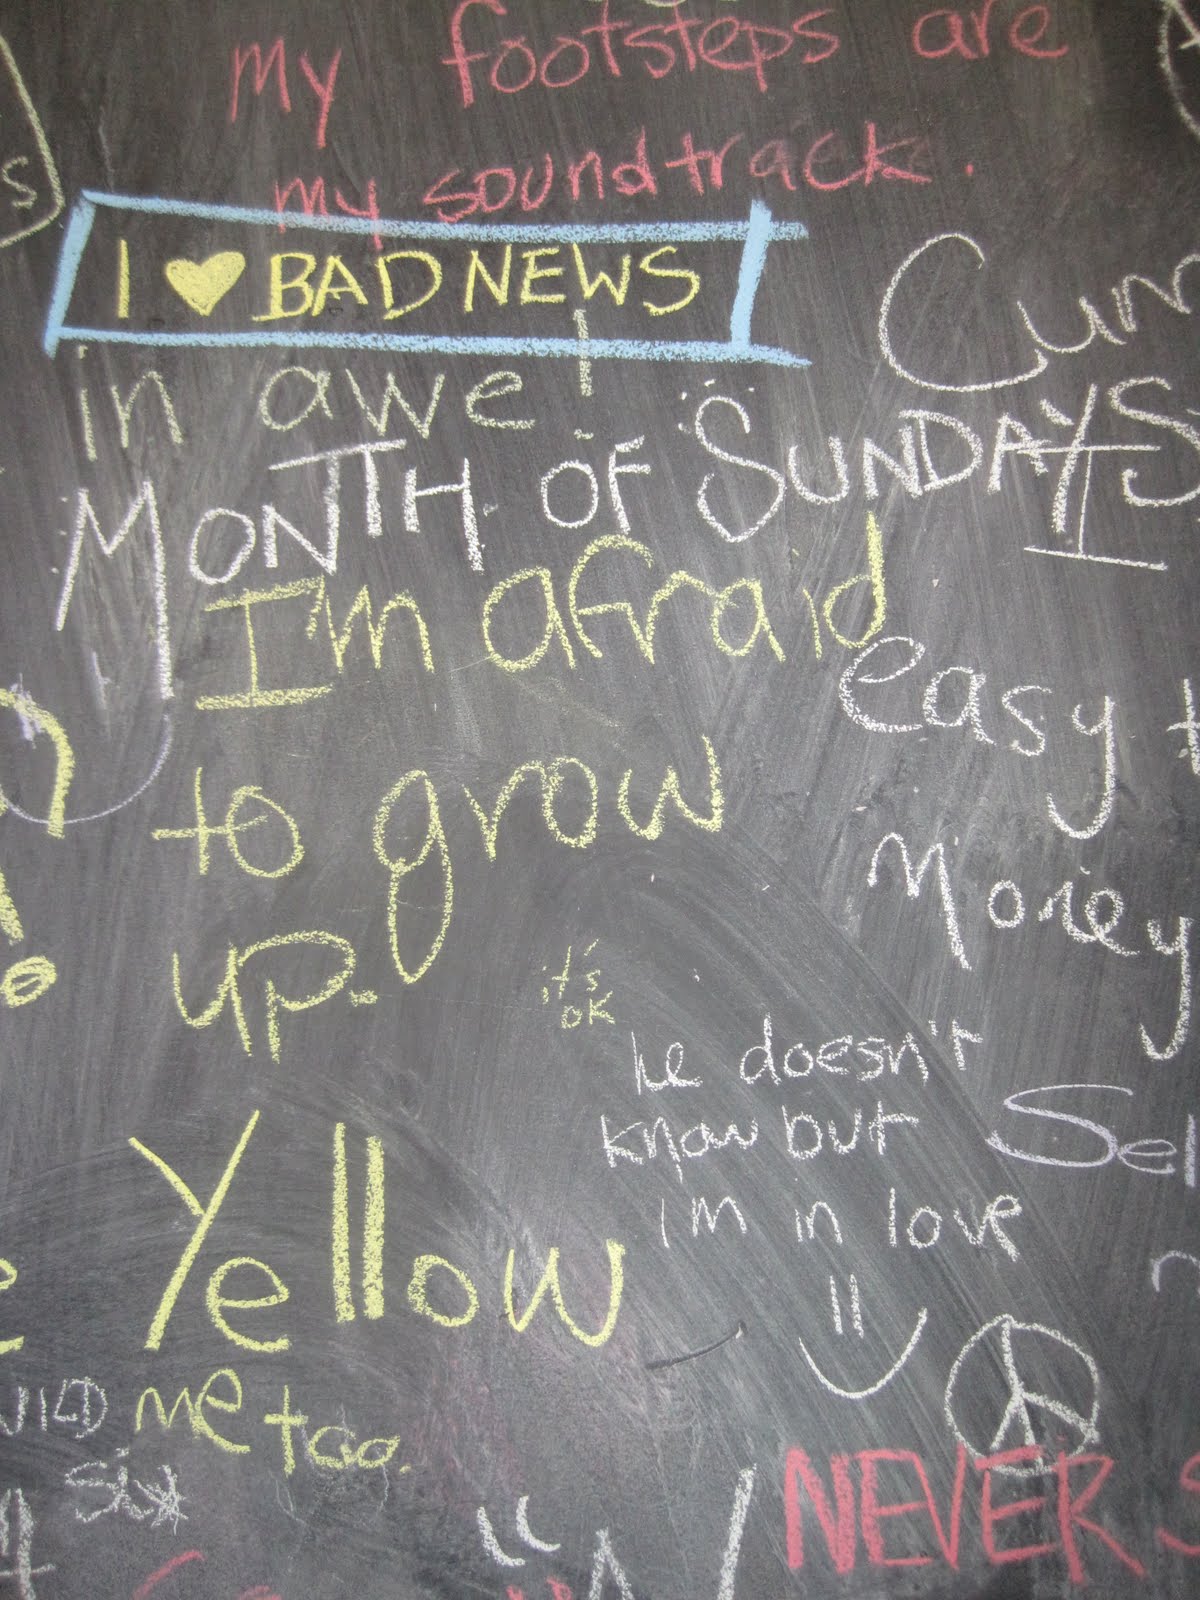 my footsteps are
my soundtrack.
I ♥ BAD NEWS
in awe!
MONTH OF SUNDAYS
I'm afraid
to grow
up.
it's
ok
easy
money
he doesn't
know but
I'm in love
Yellow
me too.
six
NEVER